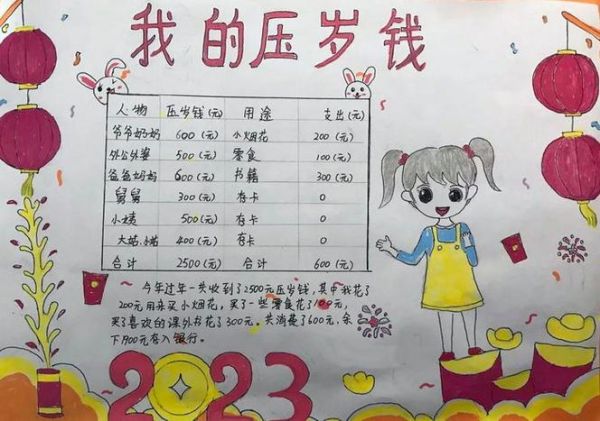 我的压岁钱
人物 压岁钱(元) 用途 支出(元)
爷爷奶奶 600(元) 小烟花 200(元)
外公外婆 500(元) 零食 100(元)
爸爸妈妈 600(元) 书籍 300(元)
舅舅 300(元) 存卡 0
小姨 500(元) 存卡 0
大姑,小姑 400(元) 存卡 0
合计 2500(元) 合计 600(元)
今年过年一共收到了2500元压岁钱,其中我花了
200元用来买小烟花,买了一些零食花了100元,
买了喜欢的课外书花了300元,共消费了600元,余
下1900元存入银行。
2023